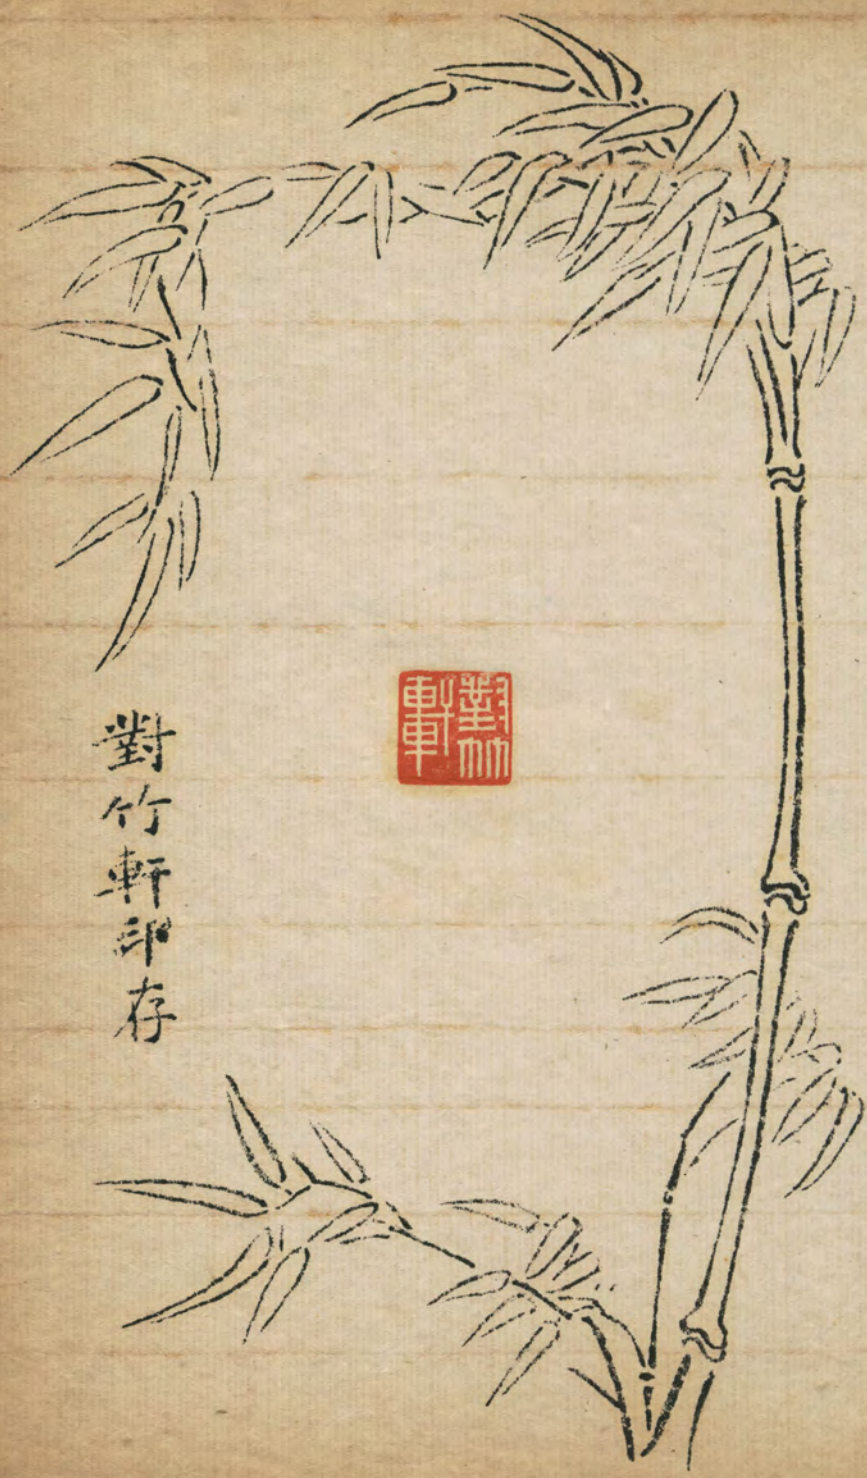 對竹軒
對竹軒印存